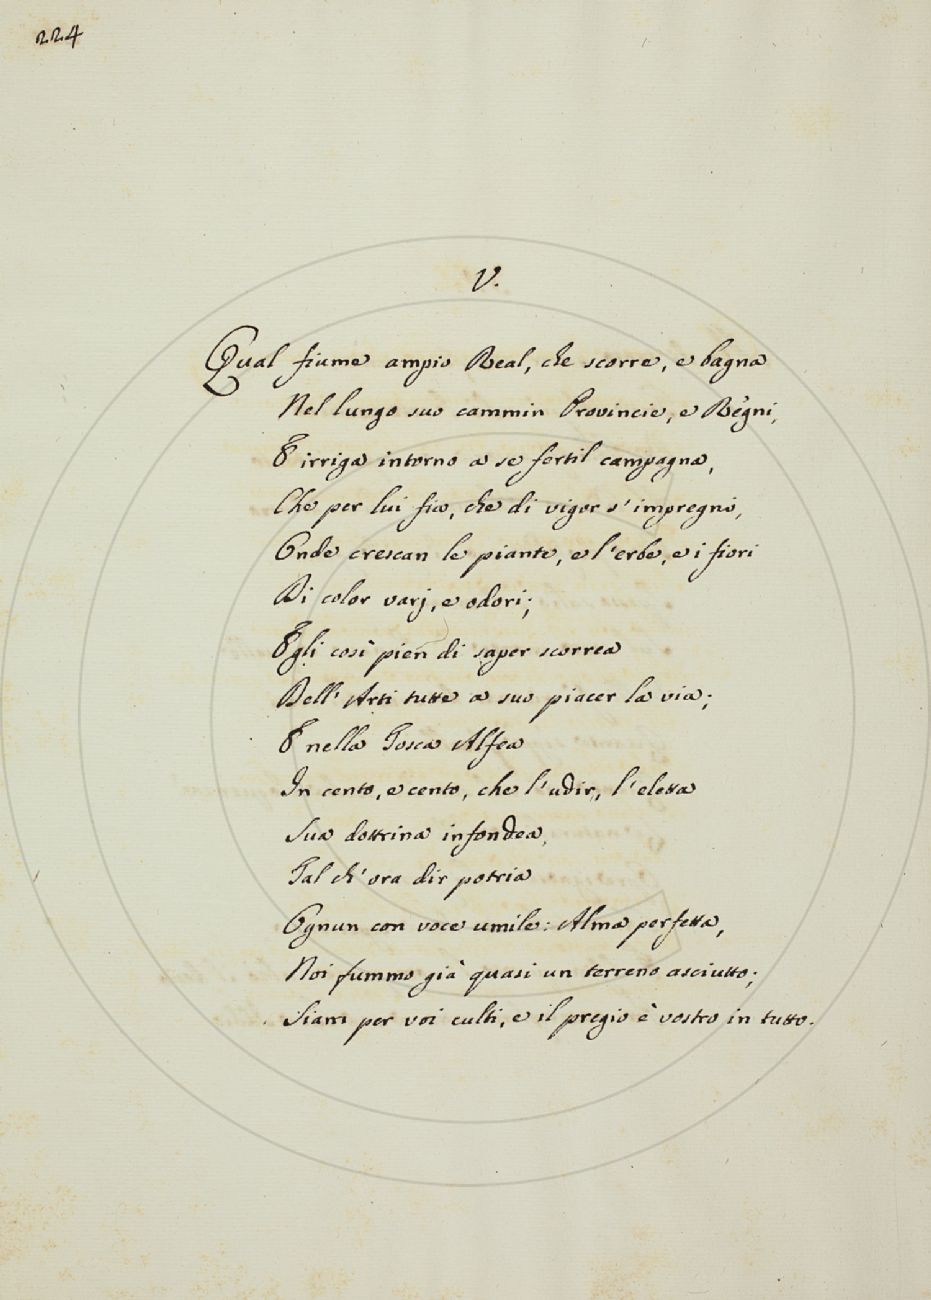 224
V.
Qual fiume ampio Real, che scorre, e bagna
Nel lungo suo cammin Provincie, e Regni,
E irriga intorno a se fertil campagna,
Che per lui fia, che di vigor s'impregni,
Onde crescan le piante, e l'erbe, e i fiori
Di color varj, e odori;
Egli così pien di saper scorrea
Dell'Arti tutte a suo piacer la via;
E nella Tosca Alfea
In cento, e cento, che l'udir, l'eletta
Sua dottrina infondea,
Tal ch'ora dir potria
Ognun con voce umile: Alma perfetta,
Noi fummo già quasi un terreno asciutto;
Siam per voi culti, e il pregio è vostro in tutto.